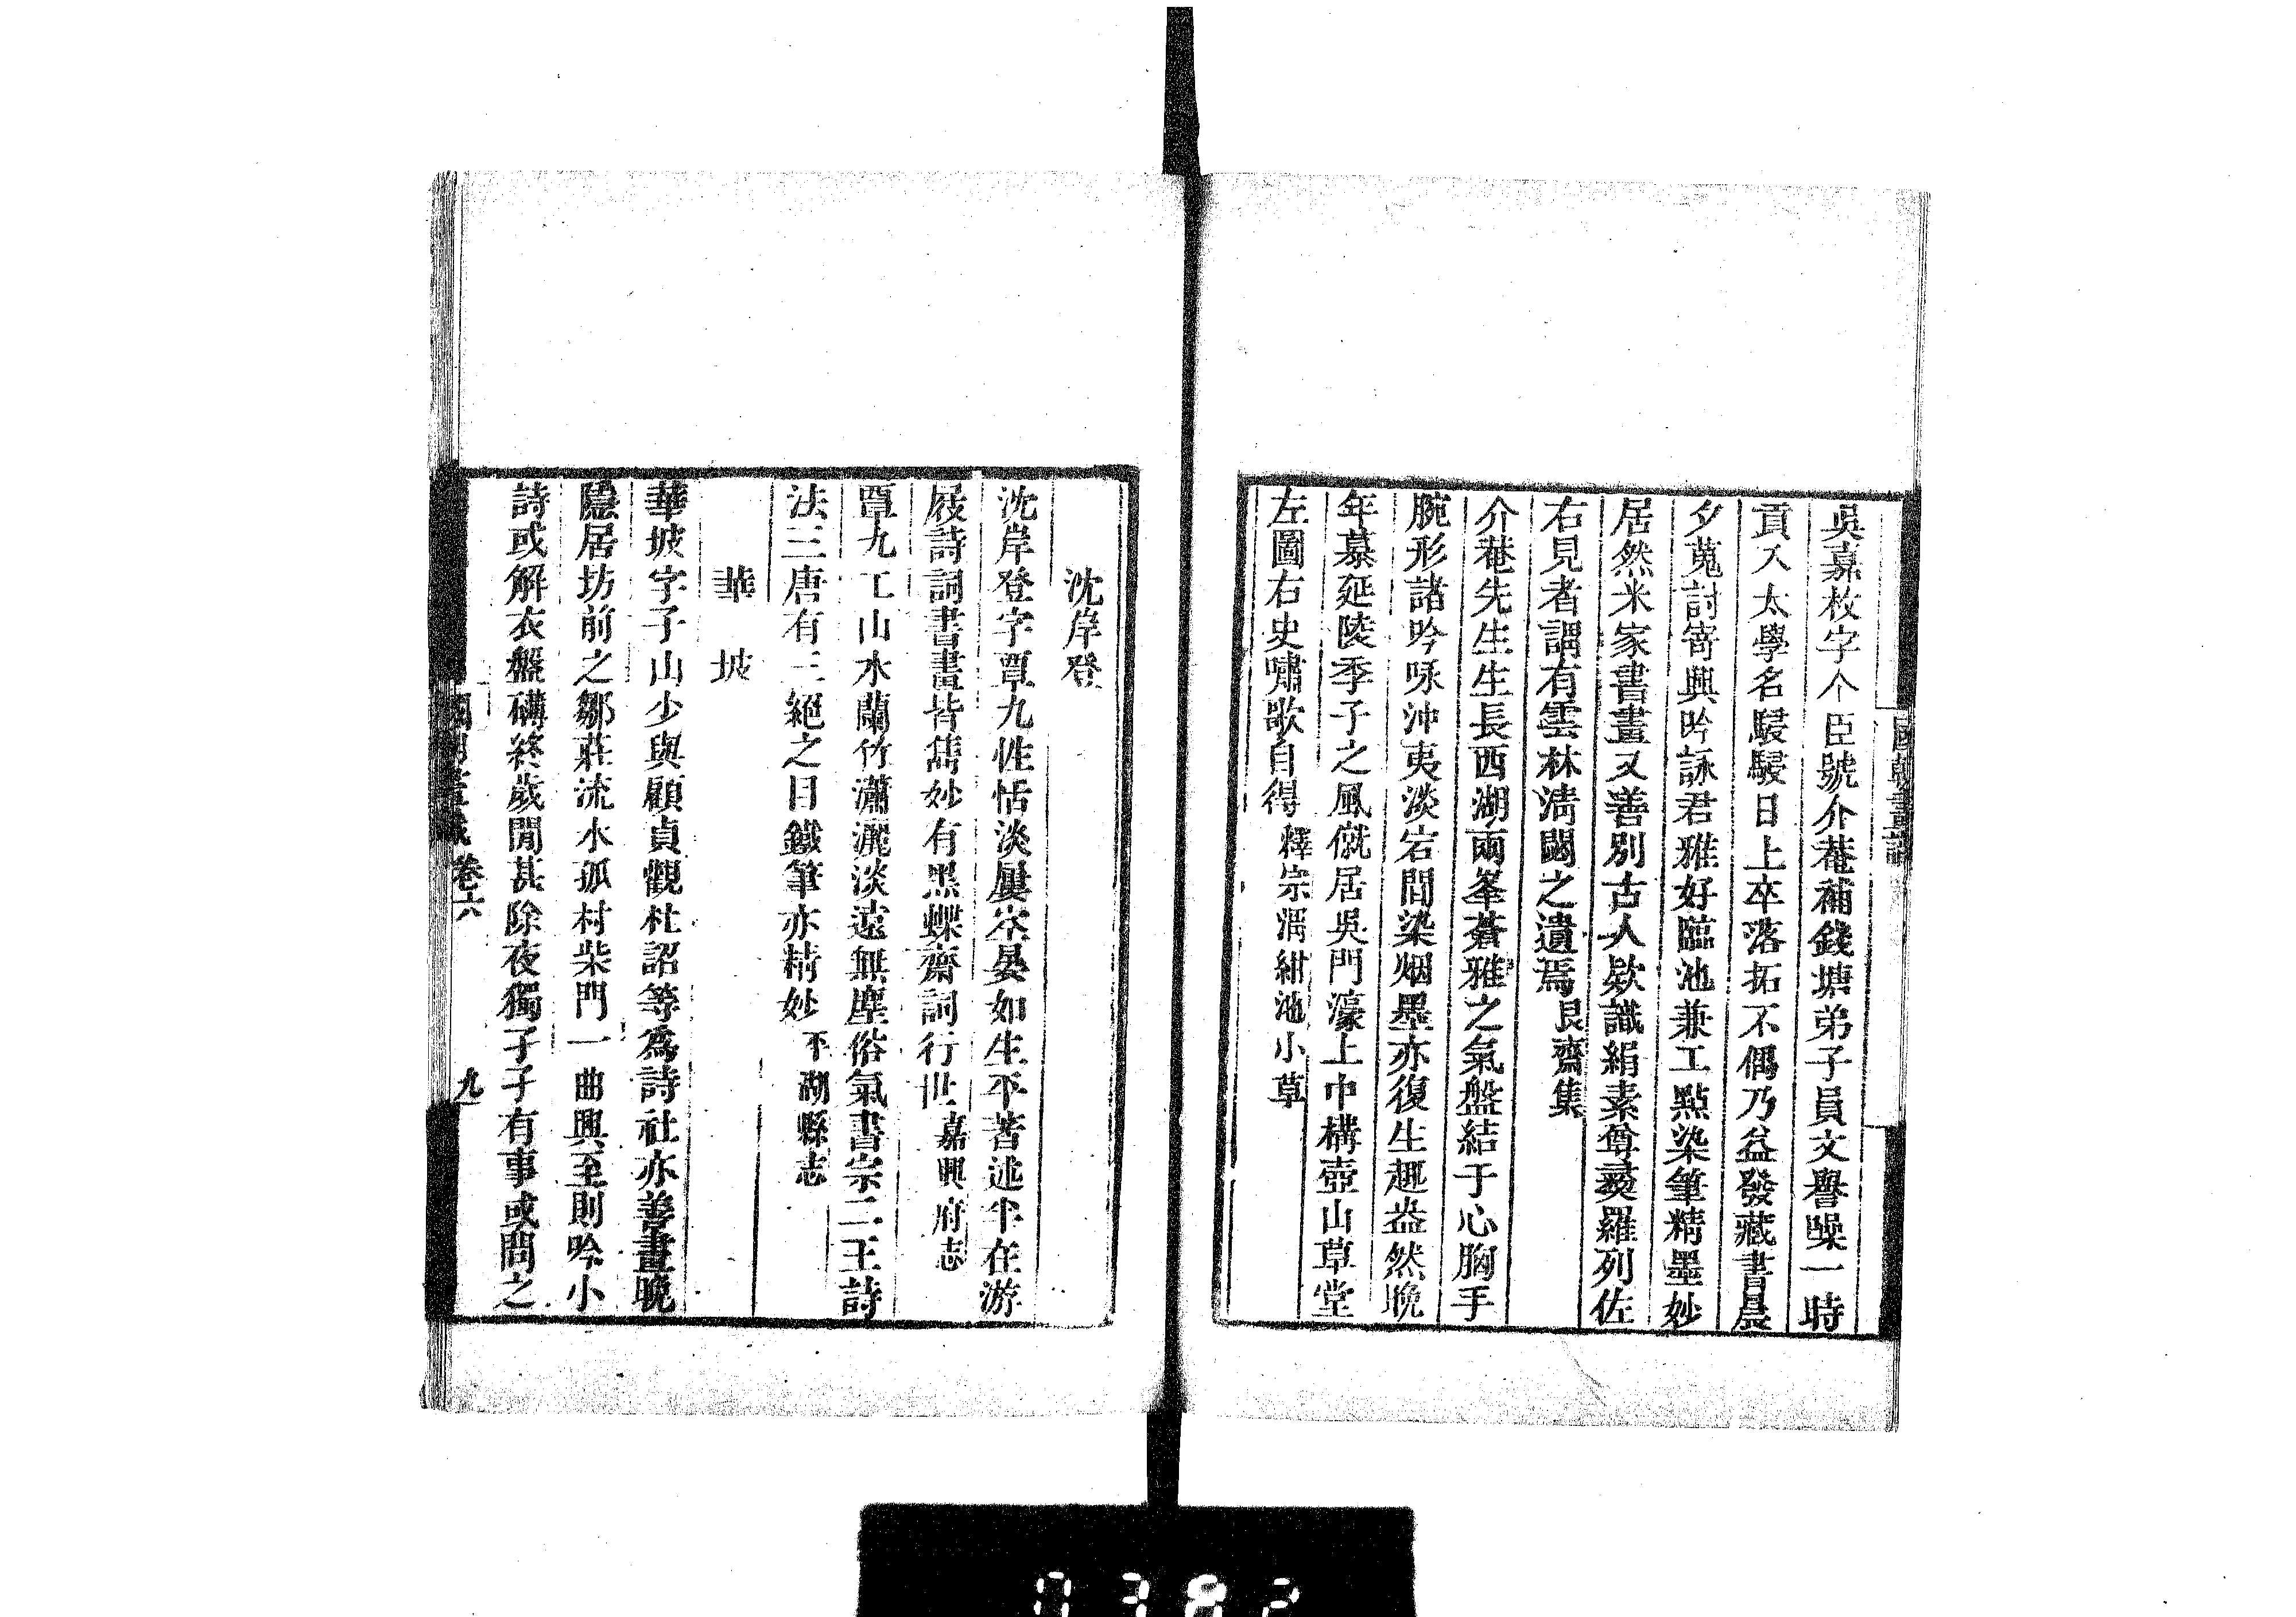 國朝畫識
吳嘉枚字个臣號介菴補錢塘弟子員文譽噪一時
貢入太學名駸駸日上卒落拓不偶乃益發藏書晨
夕蒐討寄興吟詠君雅好臨池兼工點染筆精墨妙
居然米家書畫又善別古人欵識絹素尊彝羅列佐
右見者謂有雲林淸閟之遺焉 艮齋集
介菴先生生長西湖兩峯蒼雅之氣盤結于心胸手
腕形諸吟咏沖夷淡宕間染烟墨亦復生趣盎然晚
年慕延陵季子之風僦居吳門濠上巾構壺山草堂
左圖右史嘯歌自得 釋宗渭紺池小草
沈岸登
沈岸登字覃九性恬淡屢空晏如生平著述半在游
屐詩詞書畫皆雋妙有黑蝶齋詞行世 嘉興府志
覃九工山水蘭竹瀟灑淡遠無塵俗氣書宗二王詩
法三唐有三絕之目鐵筆亦精妙 平湖縣志
華坡
華坡字子山少與顧貞觀杜詔等爲詩社亦善畫晚
隱居坊前之鄒莊流水孤村柴門一曲興至則吟小
詩或解衣盤礴終歲閒甚除夜獨孑孑有事或問之
國朝畫識 卷六 九
0382